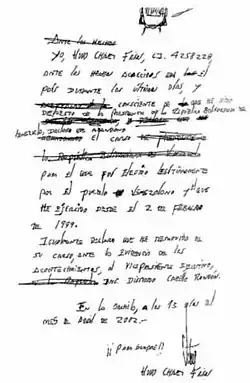 Ante los hechos
Yo, HUGO CHAVEZ FRÍAS, C.I. 4258228
ANTE LOS HECHOS ACAECIDOS EN EL
PAÍS DURANTE LOS ÚLTIMOS DÍAS Y
CONSCIENTE DE QUE HE SIDO
DEPUESTO DE LA PRESIDENCIA DE LA REPÚBLICA BOLIVARIANA DE
VENEZUELA, DECLARO QUE ABANDONO
EL CARGO DE
la República Bolivariana de Venezuela
PARA EL QUE FUI ELECTO LEGÍTIMAMENTE
POR EL PUEBLO VENEZOLANO Y QUE
HE EJERCIDO DESDE EL 2 DE FEBRERO
DE 1999.
IGUALMENTE DECLARO QUE HE REMOVIDO DE
SU CARGO, ANTE LA EVIDENCIA DE LOS
ACONTECIMIENTOS, AL VICEPRESIDENTE EJECUTIVO,
ING. DIOSDADO CABELLO RONDÓN.
EN LA ORCHILA, A LOS 13 DÍAS DEL
MES DE ABRIL DE 2002.-
¡¡PARA SIEMPRE!!
HUGO CHAVEZ FRÍAS